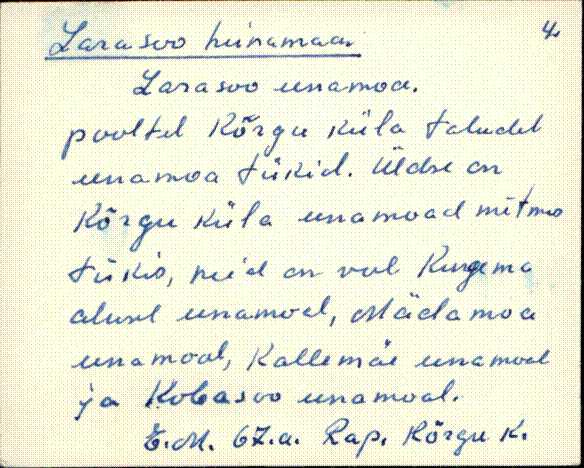 Larasoo heinamaa. 4.
Larasoo unamoa.
pooltel Kõrgu küla taludel
unamoa tükid. Üldse on
Kõrgu küla unamoad mitmes
tükis, neid on veel Kurgema
alusel unamoal, Mädamoa
unamoal, Kallemäe unamoal
ja Kobasoo unamoal.
E.M. 67.a. Rap. Kõrgu k.